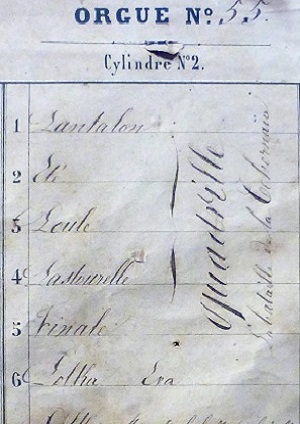 ORGUE Nº 55.
Cylindre Nº 2.
1 Pantalon
2 Eté
3 Poule
4 Pastourelle
5 Finale
Quadrille
la bataille de la
6 Polka Eva